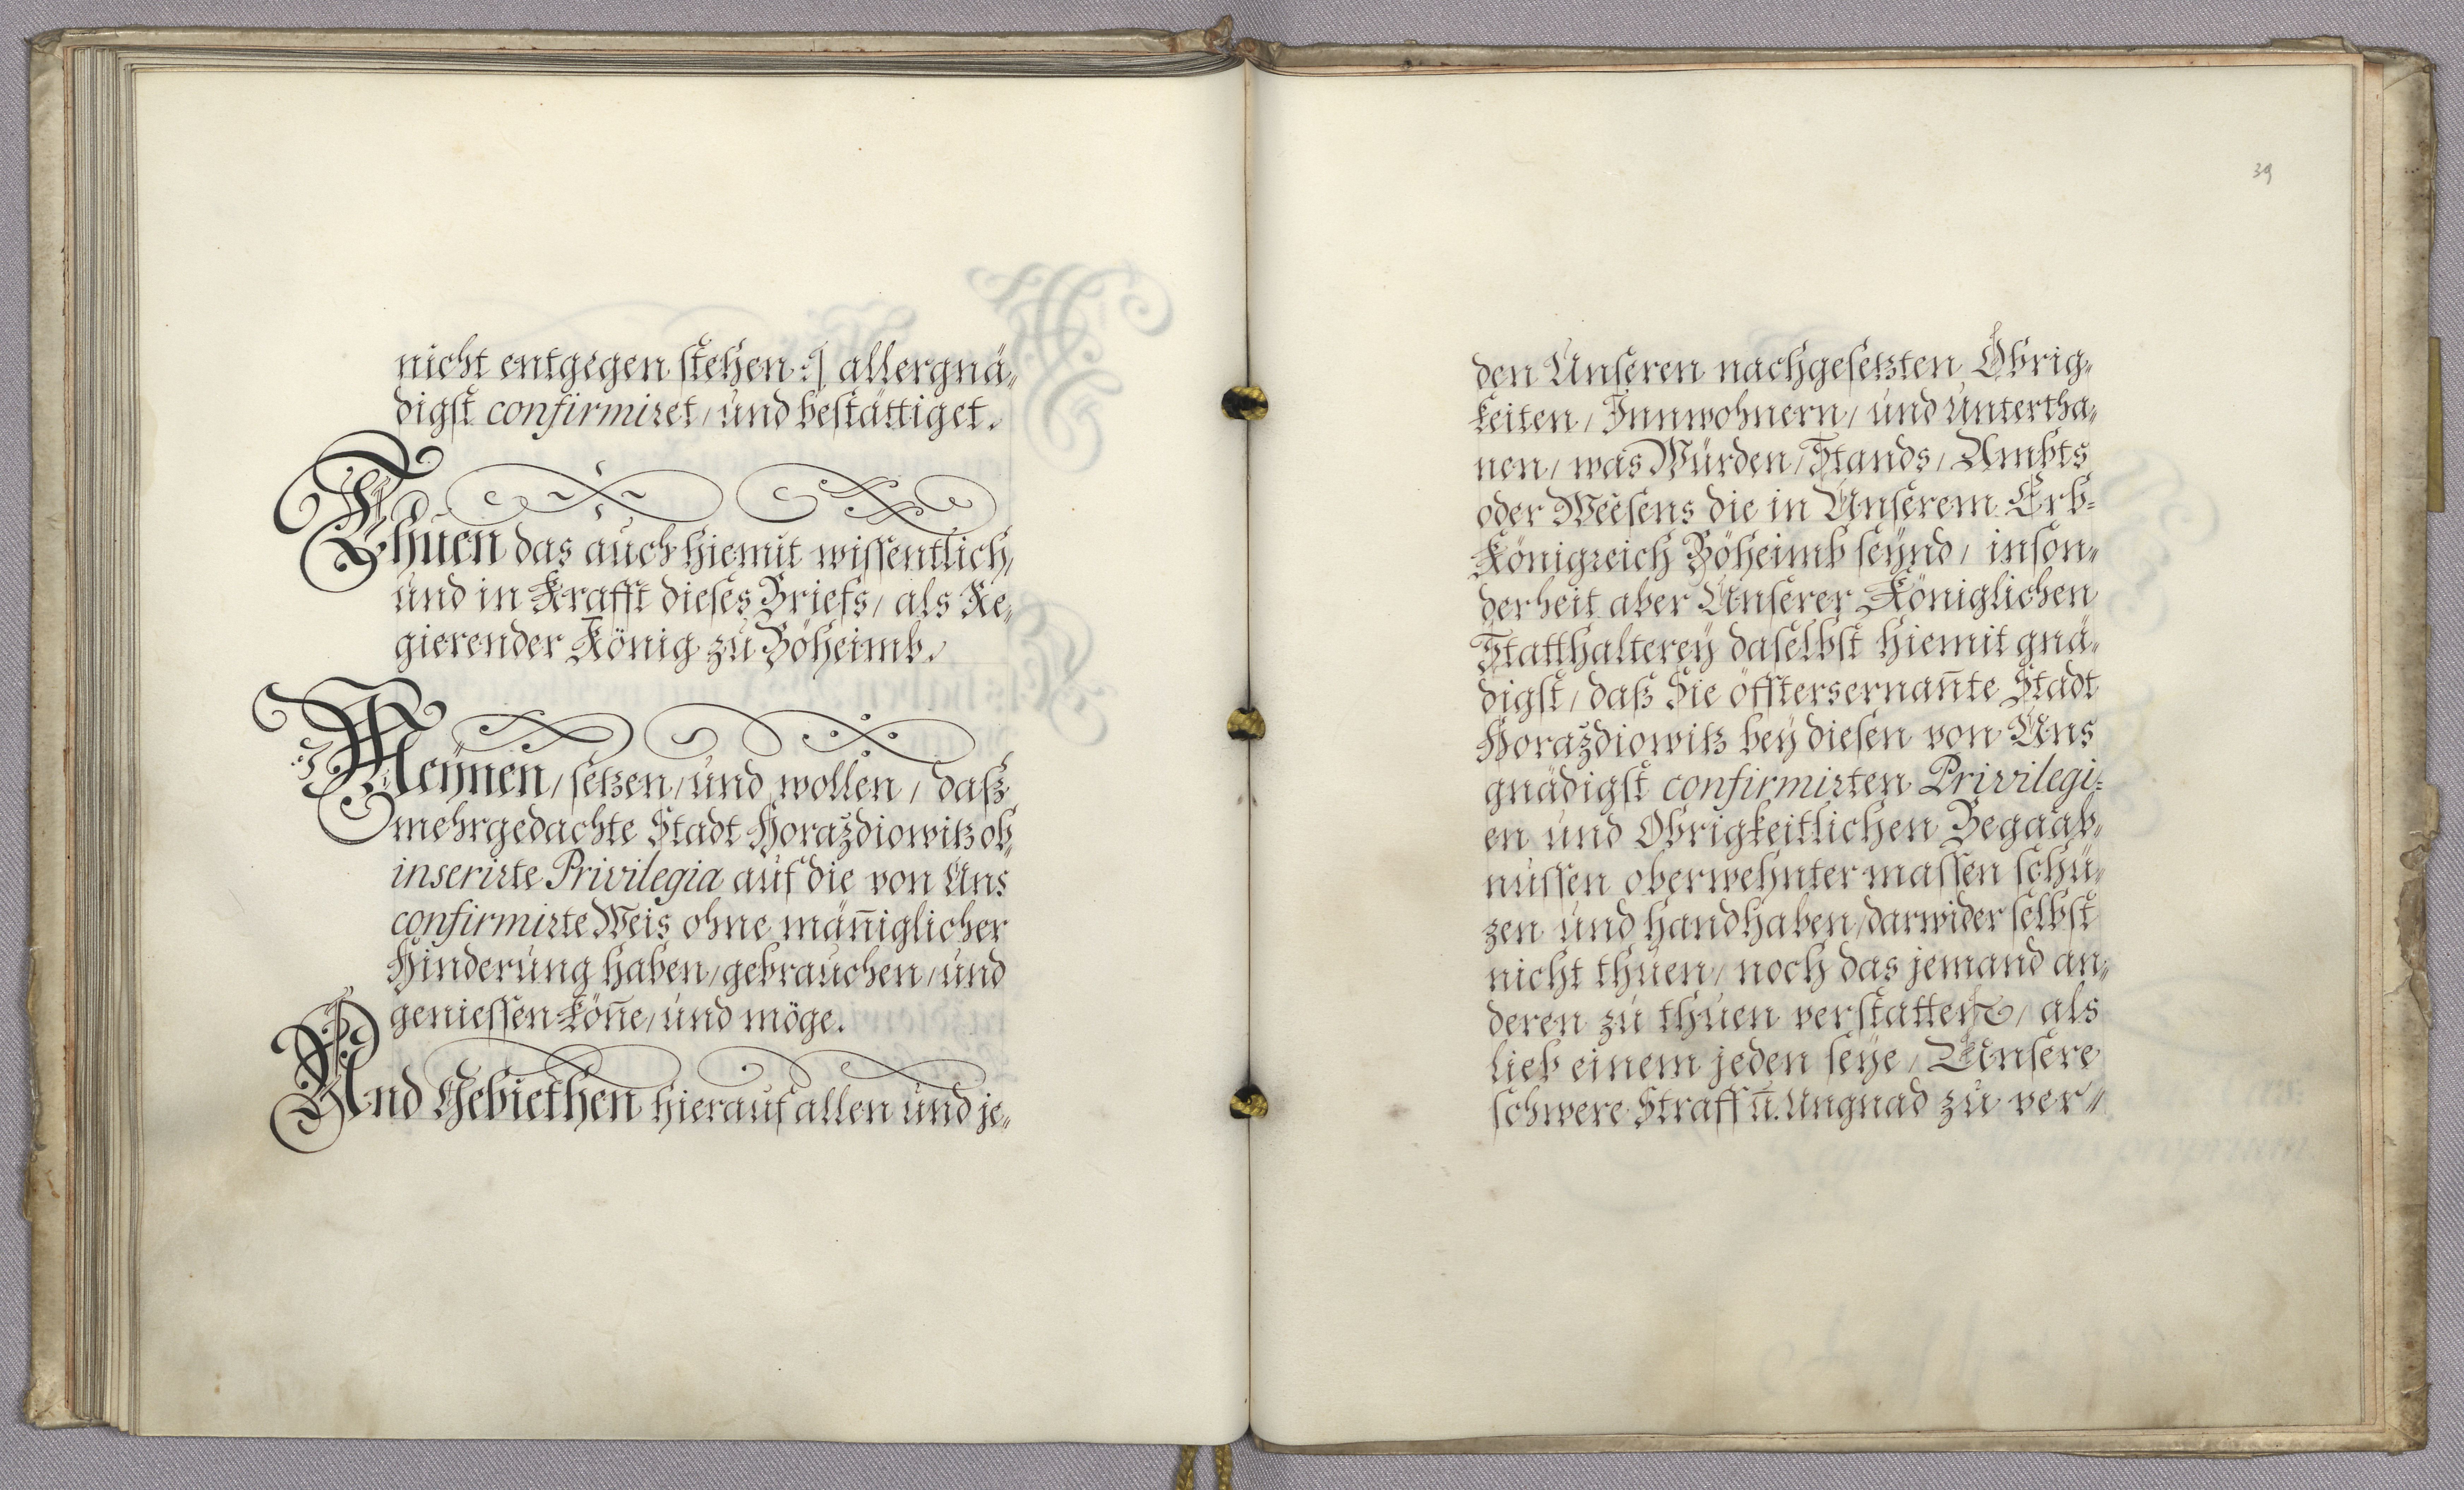 nicht entgegen stehen :/ allergnä-
digst confirmiret, und bestättiget.
Thuen das auch hiemit wissentlich,
und in Krafft dieses Briefs, als Re-
gierender König zu Böheimb.
Meÿnen, setzen, und wollen, daß
mehrgedachte Stadt Horaždiowitz ob-
inserirte Privilegia auf die von Uns
confirmirte Weis ohne män̄iglicher
Hinderung haben, gebrauchen, und
geniessen kön̄e, und möge.
Und Gebiethen hierauf allen und je-
39
den Unseren nachgesetzten Obrig-
keiten, Innwohnern, und Untertha-
nen, was Würden, Stands, Ambts
oder Weesens die in Unserem Erb-
Königreich Böheimb seÿnd, inson-
derheit aber Unserer Königlichen
Statthaltereÿ daselbst hiemit gnä-
digst, daß Sie öfftersernan̄te Stadt
Horaždiowitz beÿ diesen von Uns
gnädigst confirmirten Privilegi-
en und Obrigkeitlichen Begaab-
nussen oberwehnter massen schü-
zen und handhaben, darwider selbst
nicht thuen, noch das jemand an-
deren zu thuen verstatten, als
lieb einem jeden seÿe, Unsere
schwere Straff un̄. Ungnad zu ver-